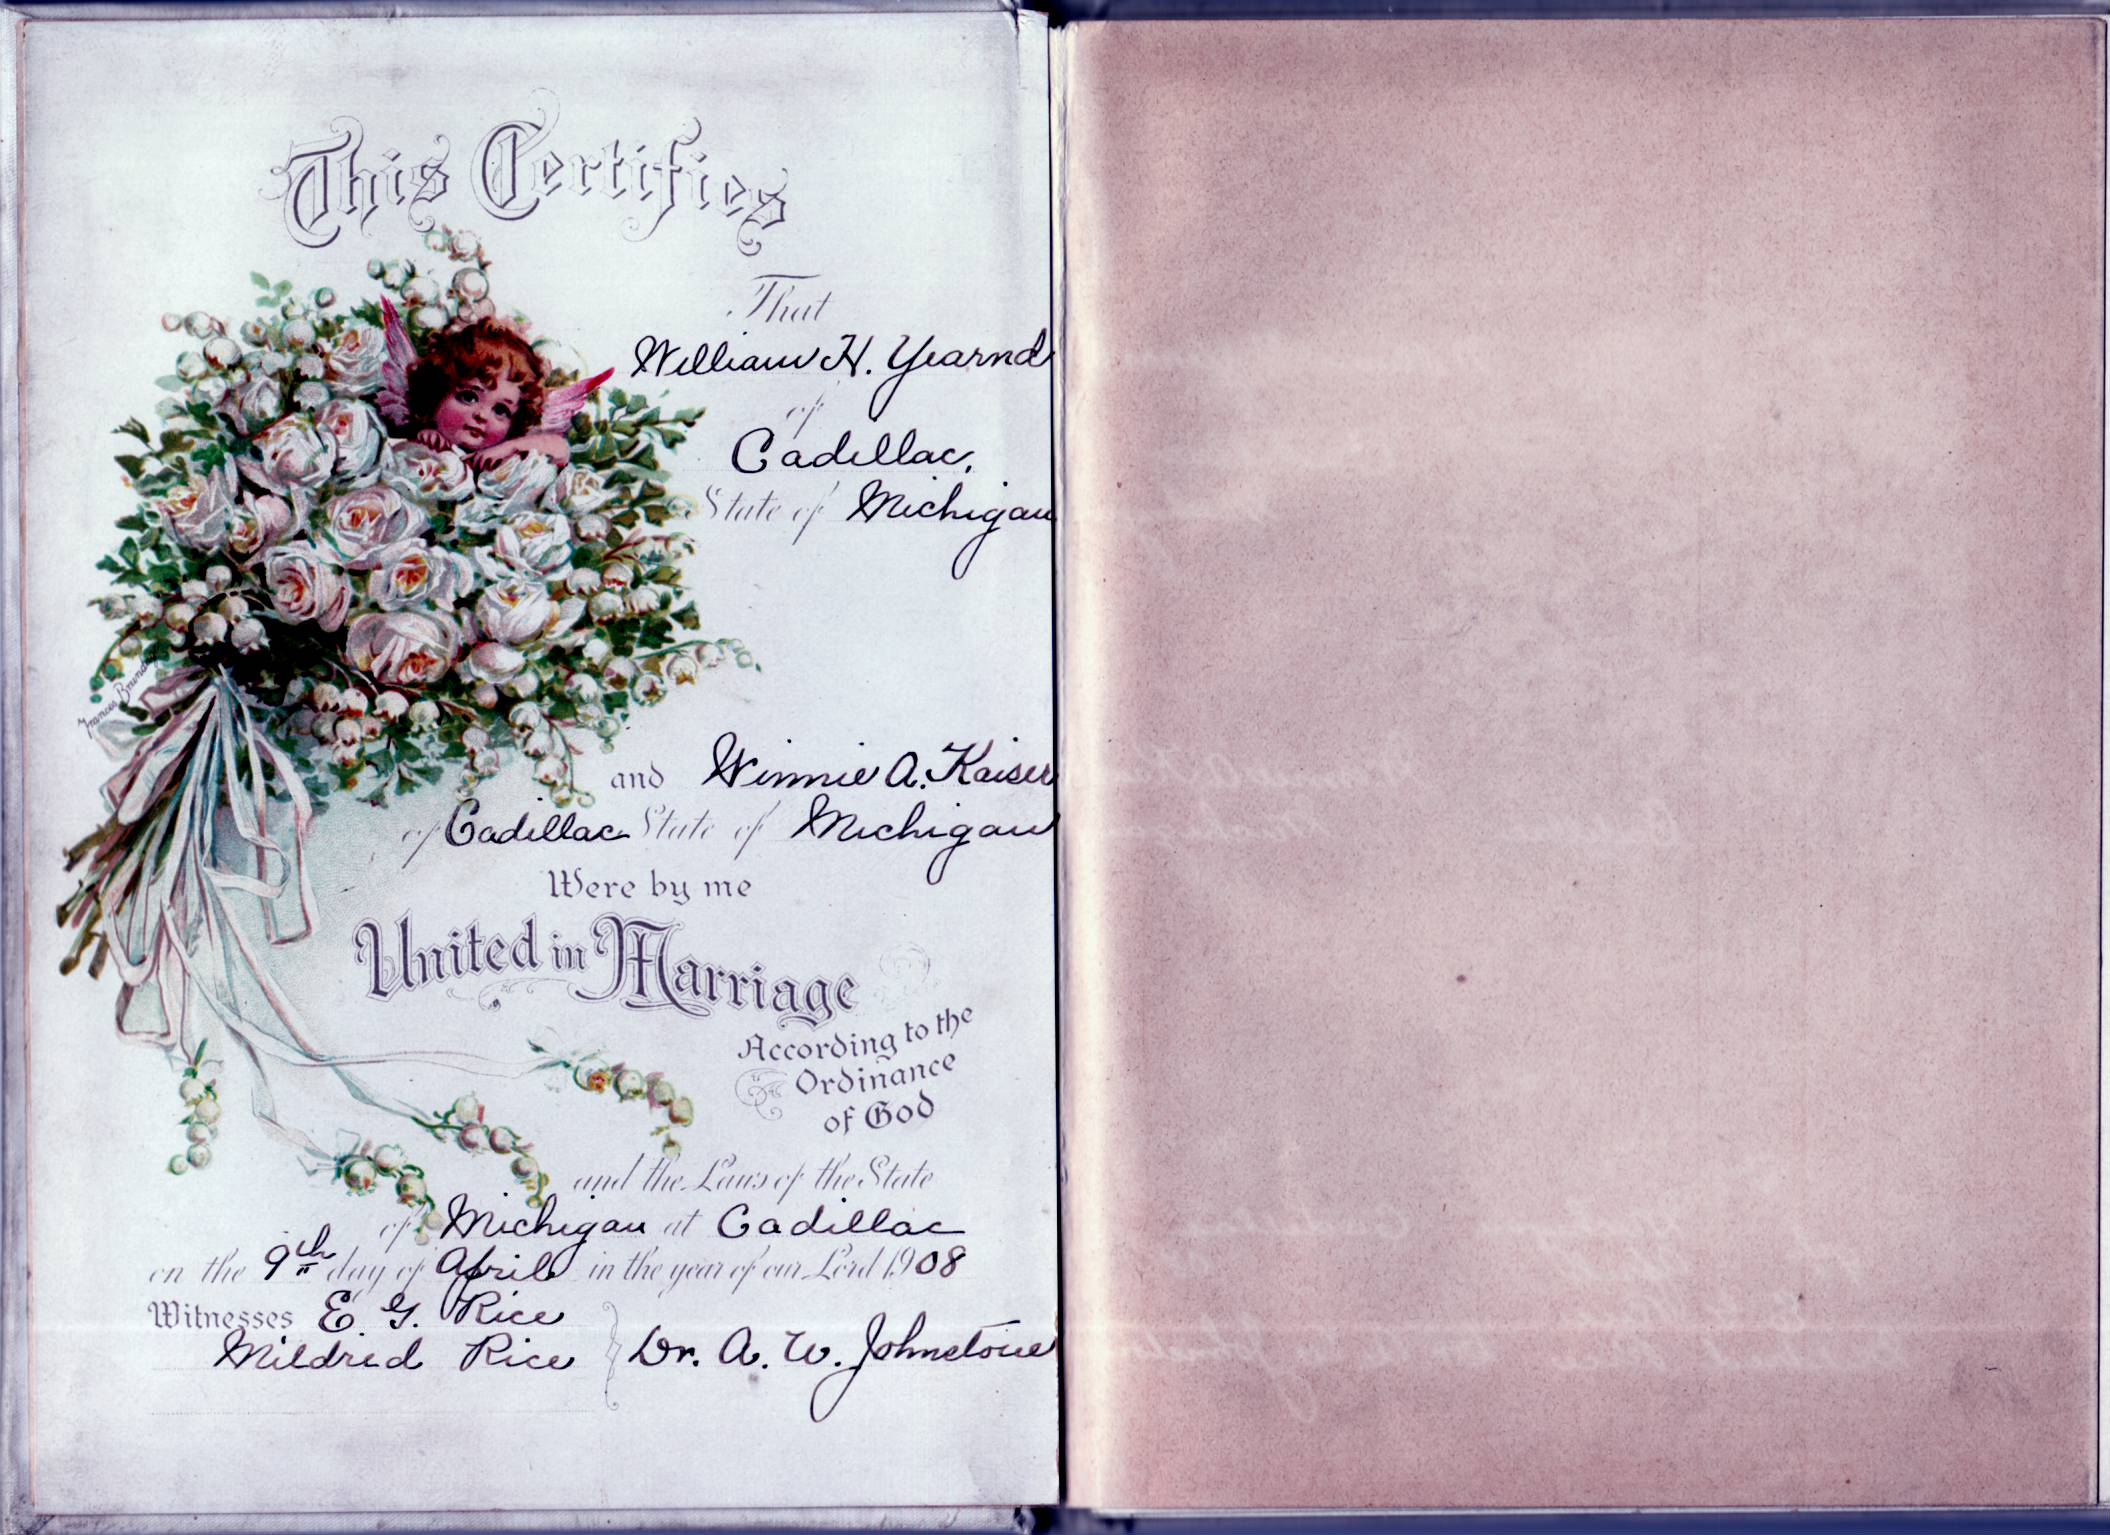 This Certifies
That
William H. Yearnd
of
Cadillac,
State of Michigan
Frances Brundage
and Winnie A. Kaiser
of Cadillac State of Michigan
Were by me
United in Marriage
According to the
Ordinance
of God
and the Laws of the State
of Michigan at Cadillac
on the 9th day of April in the year of our Lord 1908
Witnesses E. G. Rice
Mildred Rice Dr. A. W. Johnstone